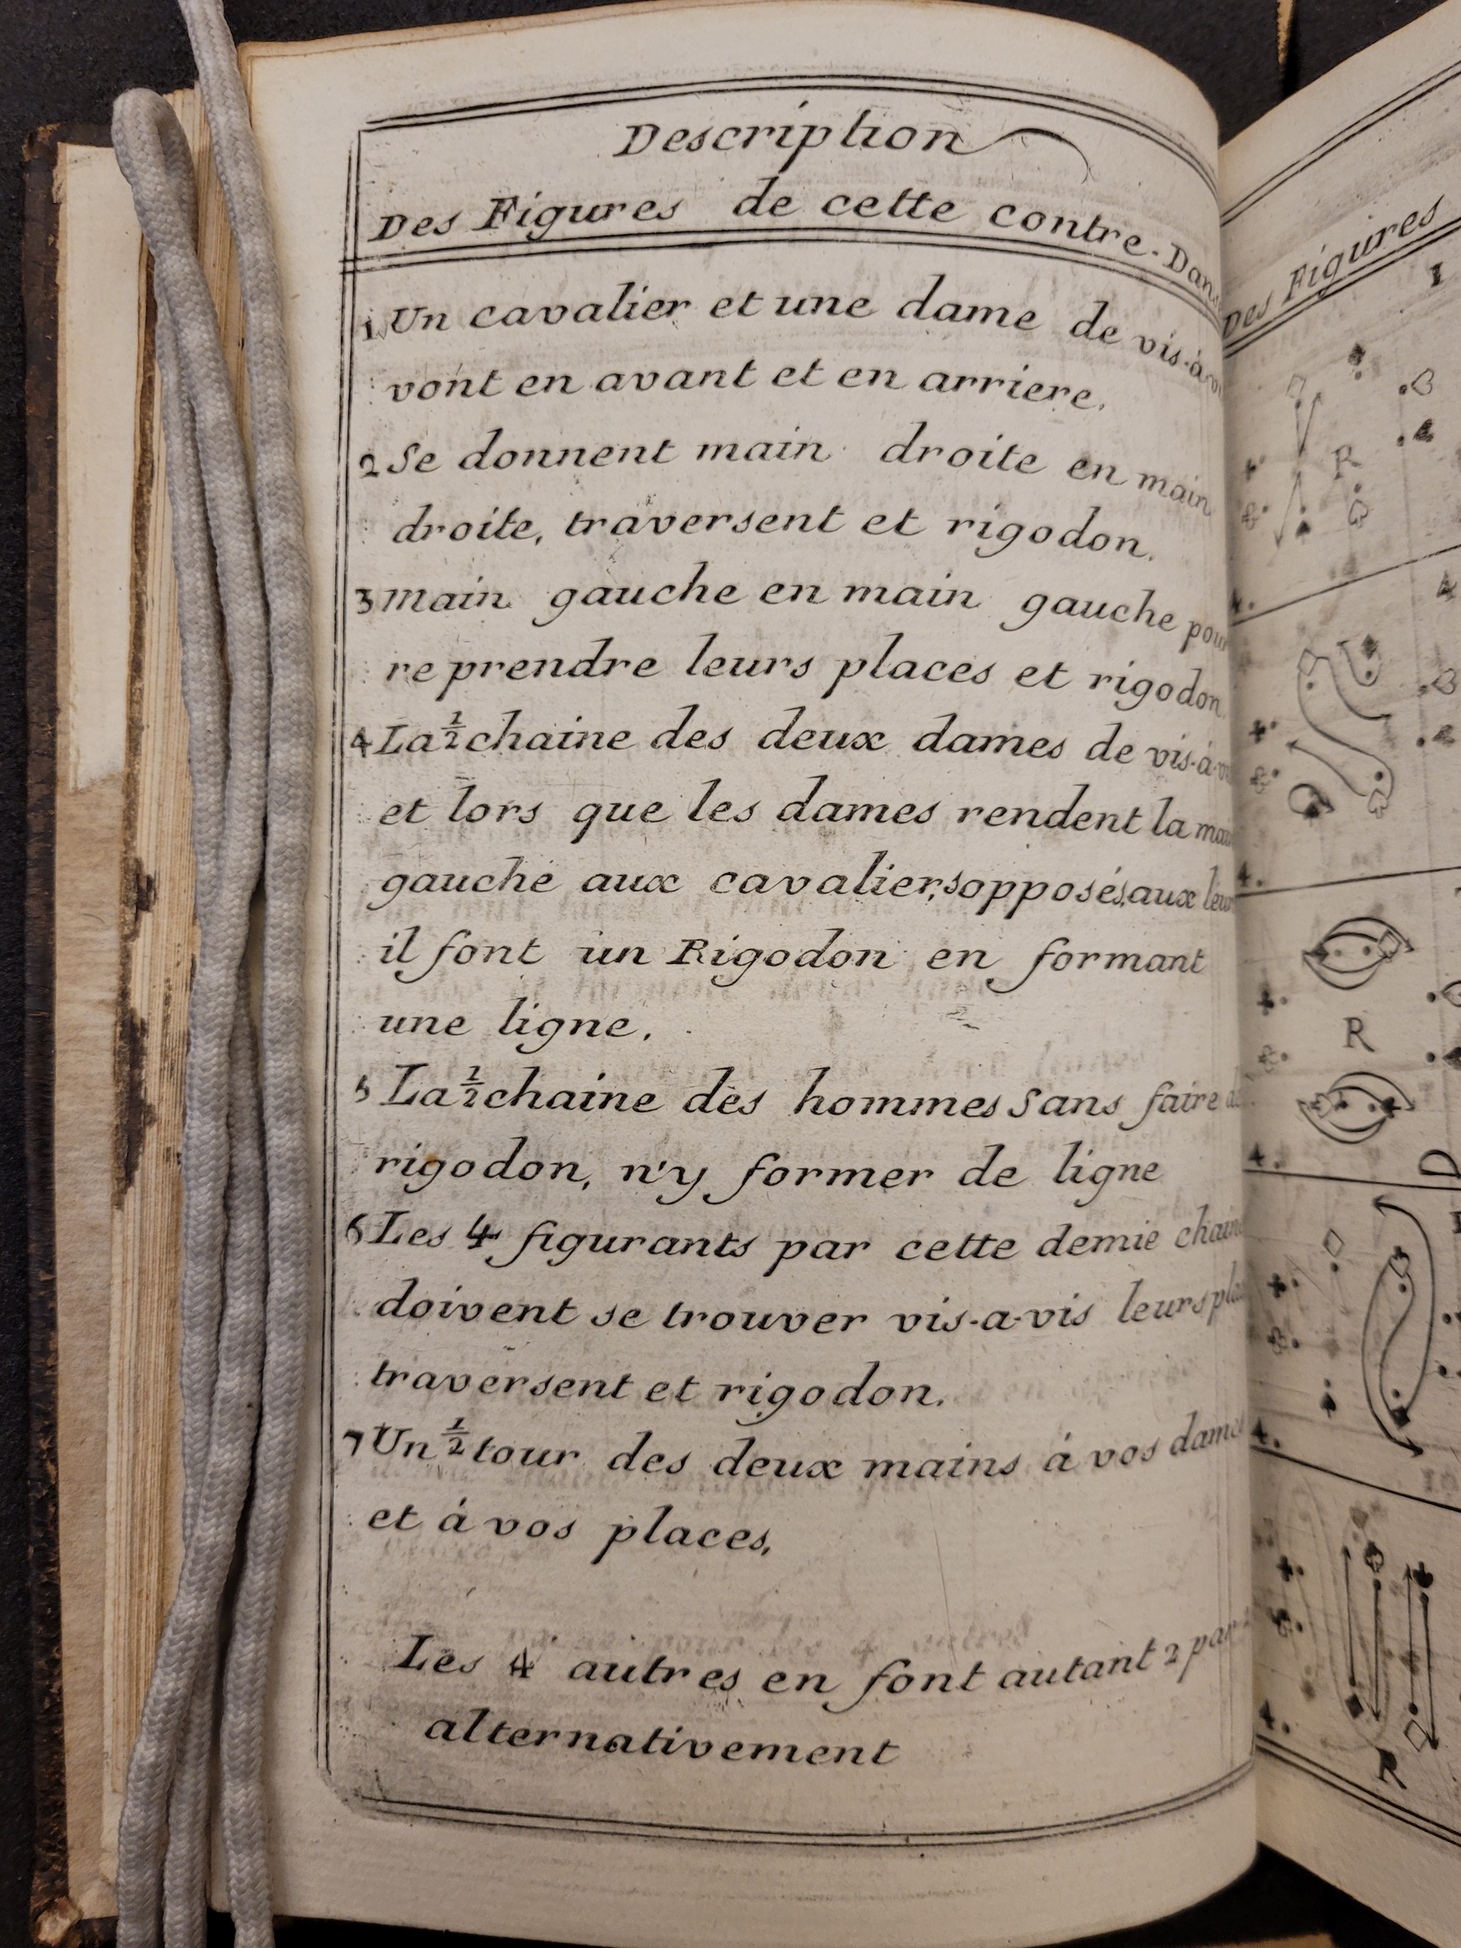 Description
Des Figures de cette contre-Dans
1 Un cavalier et une dame de vis-à-vi
vont en avant et en arriere.
2 Se donnent main droite en main
droite, traversent et rigodon.
3 main gauche en main gauche pour
reprendre leurs places et rigodon.
4 La ½ chaine des deux dames de vis-à-vi
et lors que les dames rendent la mai
gauche aux cavaliers, opposés, aux leur
il font un Rigodon en formant
une ligne.
5 La ½ chaine des hommes sans faire de
rigodon, n'y former de ligne
6 Les 4 figurants par cette demie chaine
doivent se trouver vis-a-vis leurs pla
traversent et rigodon.
7 Un ½ tour des deux mains á vos dames
et á vos places,
Les 4 autres en font autant 2 par
alternativement
Des Figures
1
R
4.
4
4.
R
4.
D
4.
4.
R